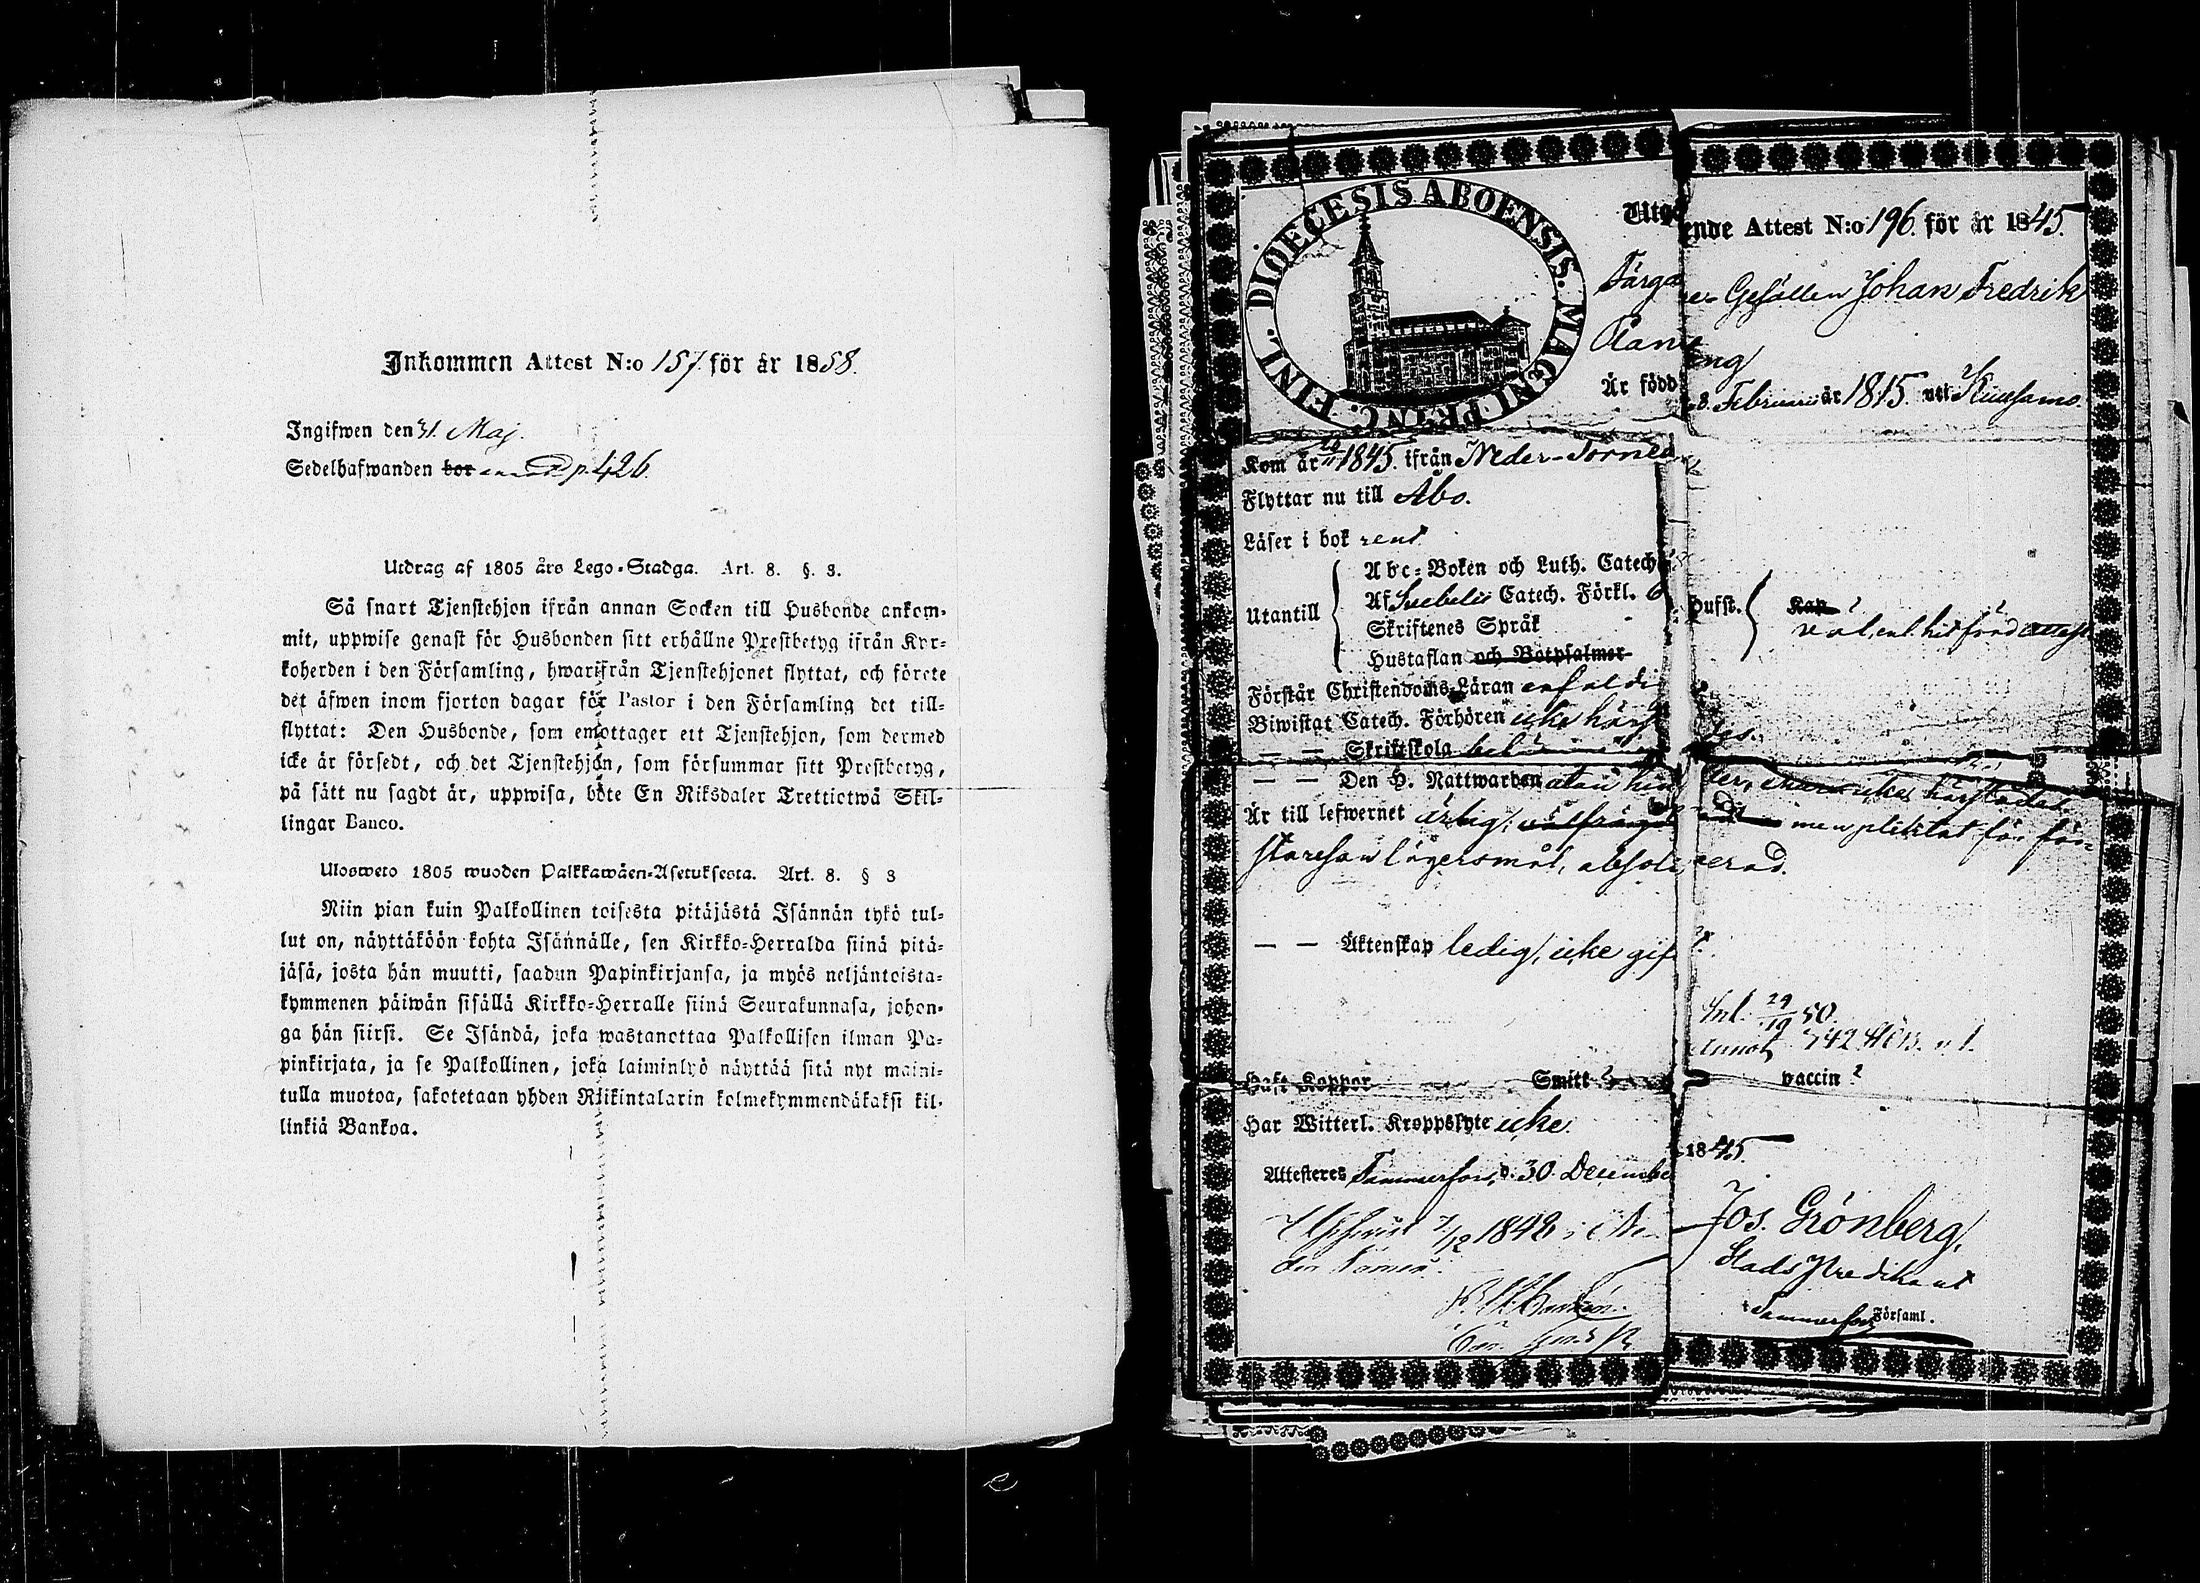 Inkommen Attest N:o 157 för år 1858.
Ingifwen den 31. Maj.
Sedelhafwanden bor p. 426.
Utdrag af 1805 års Lego-Stadga. Art. 8. §. 3.
Så snart Tjenstehjon ifrån annan Socken till Husbonde ankom-
mit, uppwise genast för Husbonden sitt erhållne Prestbetyg ifrån Kyr-
koherden i den Församling, hwarifrån Tjenstehjonet flyttat, och förete
det äfwen inom fjorton dagar för Pastor i den Församling det till-
flyttat: Den Husbonde, som emottager ett Tjenstehjon, som dermed
icke är försedt, och det Tjenstehjon, som försummar sitt Prestbetyg,
på sätt nu sagdt är, uppwisa, böte En Riksdaler Trettiotwå Skil-
lingar Banco.
Ulosweto 1805 wuoden Palkkawäen-Asetuksesta. Art. 8. § 3
Niin pian kuin Palkollinen toisesta pitäjästä Isännän tykö tul-
lut on, näyttäköön kohta Isännälle, sen Kirkko-Herralda siinä pitä-
jäsä, josta hän muutti, saadun Papinkirjansa, ja myös neljäntoista-
kymmenen päiwän sisällä Kirkko-Herralle siinä Seurakunnasa, johon-
ga hän siirsi. Se Isändä, joka wastanottaa Palkollisen ilman Pa-
pinkirjata, ja se Palkollinen, joka laiminlyö näyttää sitä nyt maini-
tulla muotoa, sakotetaan yhden Riikintalarin kolmekymmendäkaksi kil-
linkiä Bankoa.
DIOECESIS ABOENSIS. MAGNI PRINC. FINL.
Utgående Attest N:o 196. för år 1845.
Färgare Gesällen Johan Fredrik
Planting
Är född 8. Februari år 1815. uti Kuusamo.
Kom år 1845. ifrån Neder-Torneå
Flyttar nu till Åbo.
Läser i bok rent
Utantill
Abc-Boken och Luth. Catech
Af Svebelii Catech. Förkl.
Skriftenes Språk
Hustaflan och Botpsalmer
Hufst. Kap
enl. hitförd attest
Förstår Christendoms-Läran enfaldi
Biwistat Catech. Förhören icke härst
— — Skriftskola
— — Den H. Nattwarden utan hinder, icke härstädes.
Är till lefwernet ärlig, men pliktat för för-
sta resan lägersmål, absolverad.
— — Äktenskap ledig, icke gift.
Inl. 29/10 50.
Annot. 742
Haft Koppor Smitt vaccin ?
Har Witterl. Kroppslyte icke.
Attesteres Tammerfors, d. 30. December 1845.
Uppvist 7/12 1848 i
Jos. Grönberg,
Stads Predikant
Tammerfors Församl.